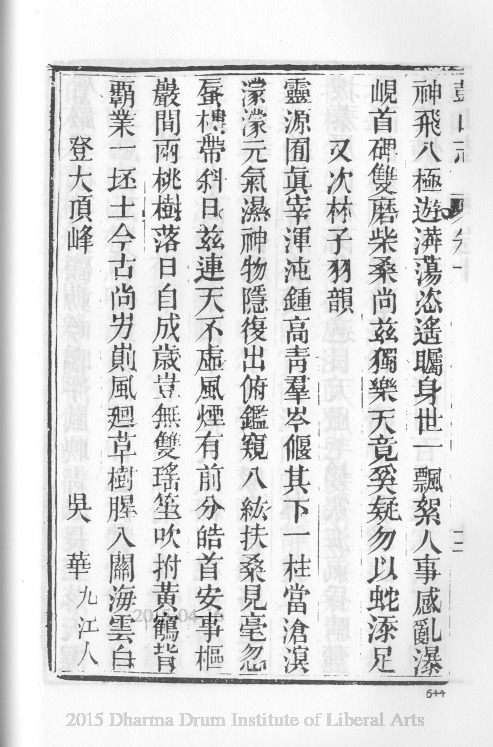 神飛八極遊溝蕩恣遙矚身世一飄絮人事感亂瀑
峴首碑雙磨柴桑尚茲獨樂天竟奚疑勿以蛇添足
又次林子羽韻
靈源囿眞宰渾沌鍾高青羣岑偃其下一柱當滄溟
濛濛元氣濕神物隱復出俯鑑窺八紘扶桑見毫忽
蜃樓帶斜日茲連天不虛風煙有前分皓首安事樞
巖間兩桃樹落日自成歲豈無雙瑤笙吹拊黃鶴背
霸業一坯土今古尚屴崱風廻草樹腥入關海雲白
登大頂峰 吳華 九江人
644
2015 Dharma Drum Institute of Liberal Arts